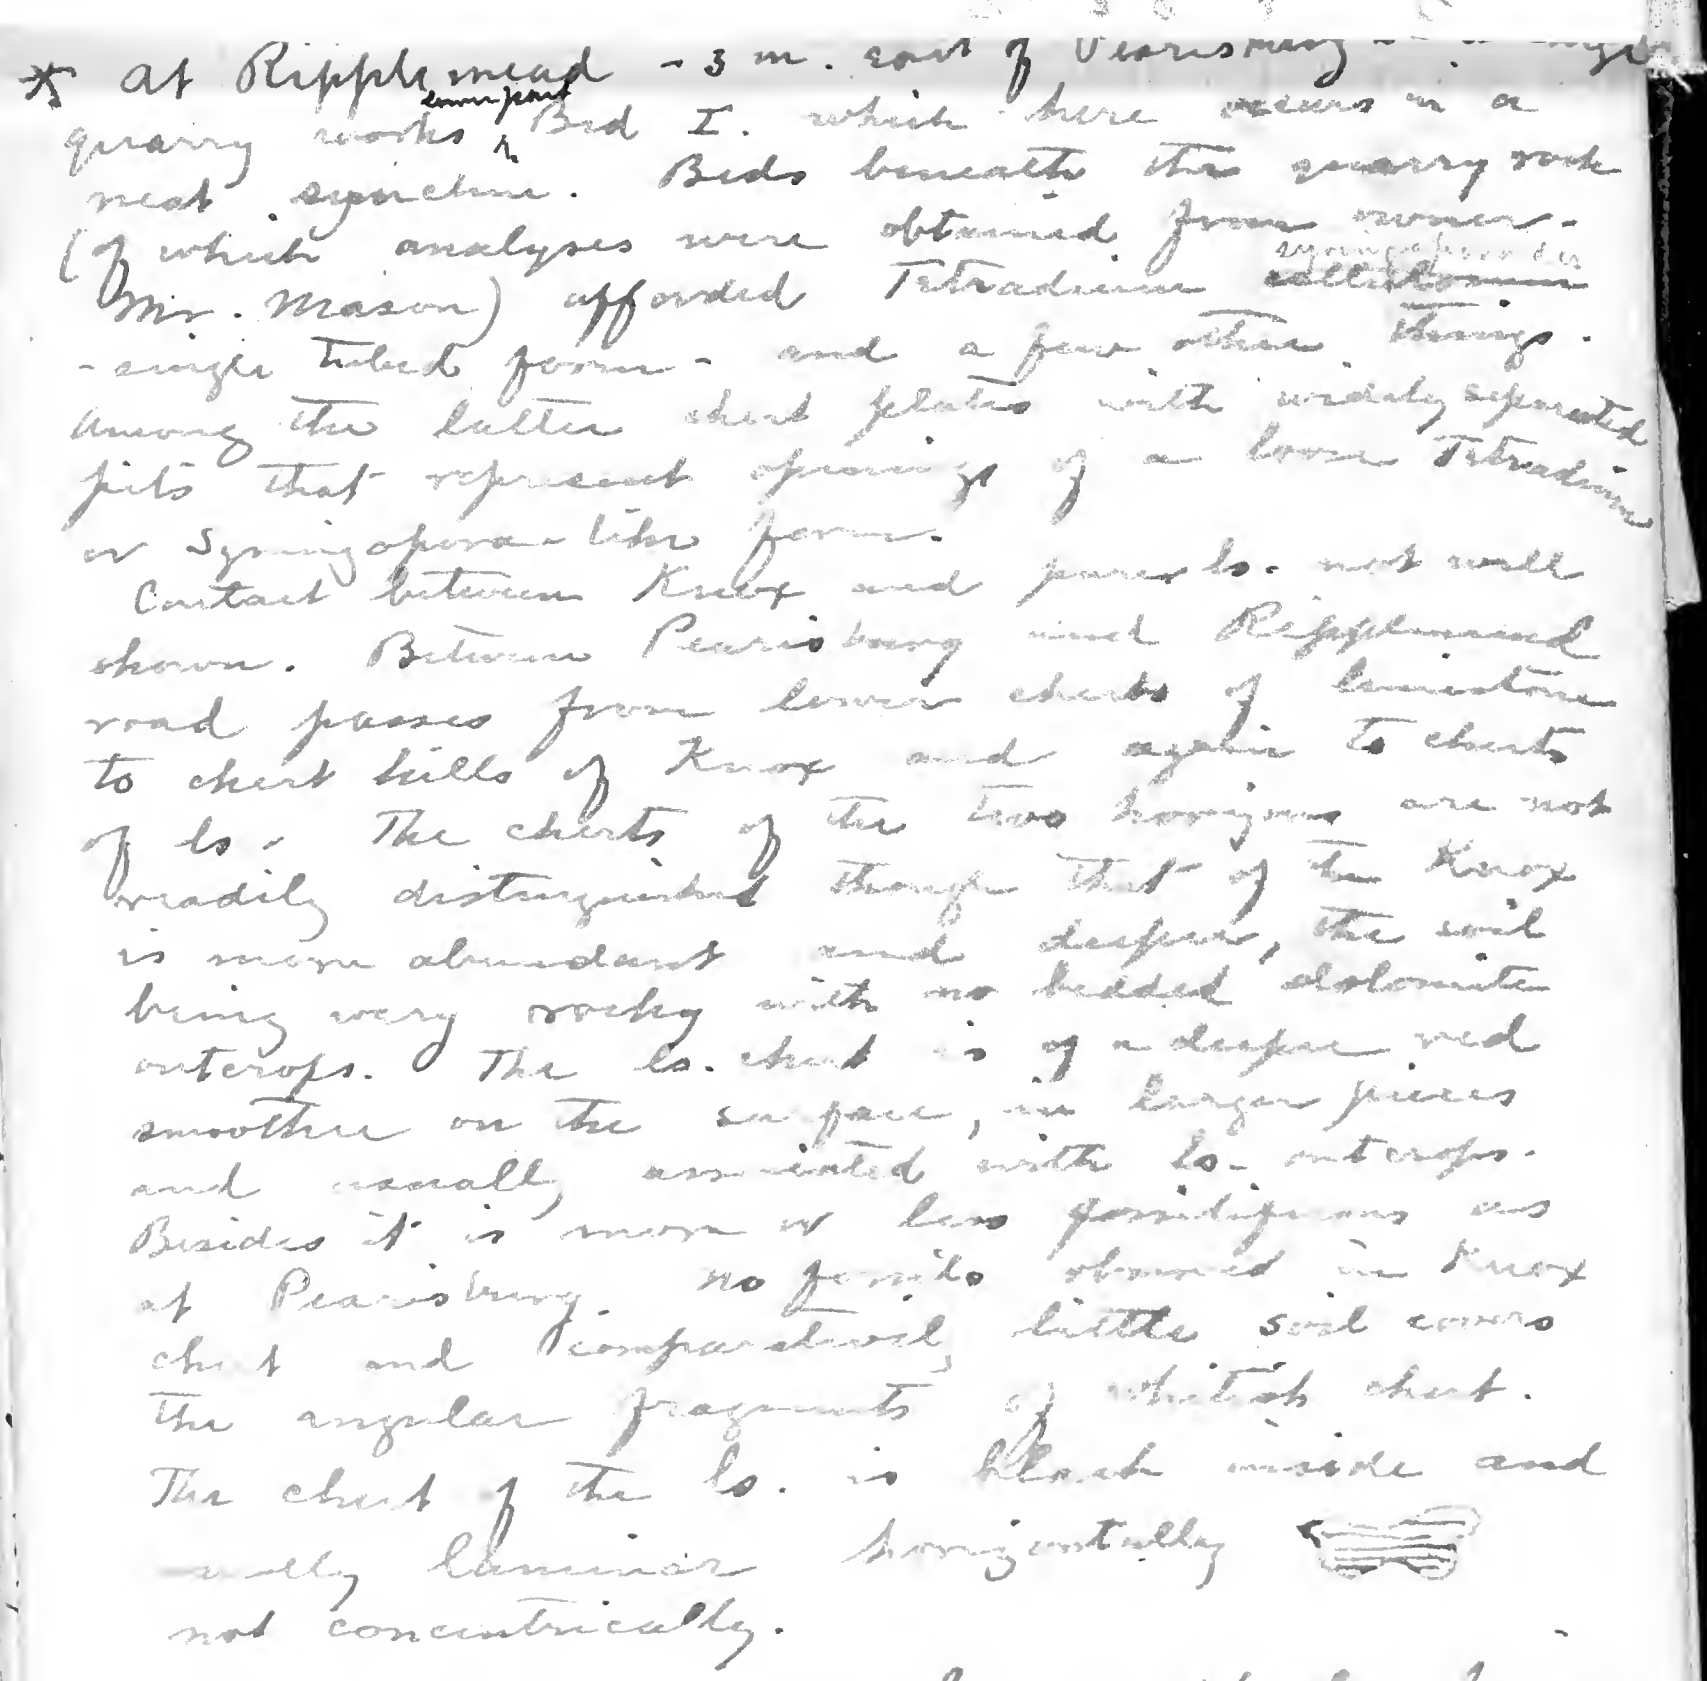 * At Ripplemead - 3 m. east of Pearisburg
quarry works lower part Bed I. which here occurs in a
neat syncline. Beds beneath the quarry rock
(of which analyses were obtained from owner -
Mr. Mason) afforded Tetradium syringoporoides
- single tubed form - and a few other things.
Among the latter chert plates with widely separated
pits that represent openings of a loose Tetradium
or Syringopora-like form.
Contact between Knox and pure ls. not well
shown. Between Pearisburg and Ripplemead
road passes from lower cherts of limestone
to chert hills of Knox and again to cherts
of ls. The cherts of the two horizons are not
readily distinguished though that of the Knox
is more abundant and deeper, the soil
being very rocky with no bedded dolomite
outcrops. The ls. chert is of a deeper red
smoother on the surface, in larger pieces
and usually associated with ls. outcrops.
Besides it is more or less fossiliferous as
at Pearisburg. No fossils observed in Knox
chert and comparatively little soil covers
the angular fragments of whitish chert.
The chert of the ls. is black inside and
laminar horizontally
not concentrically.